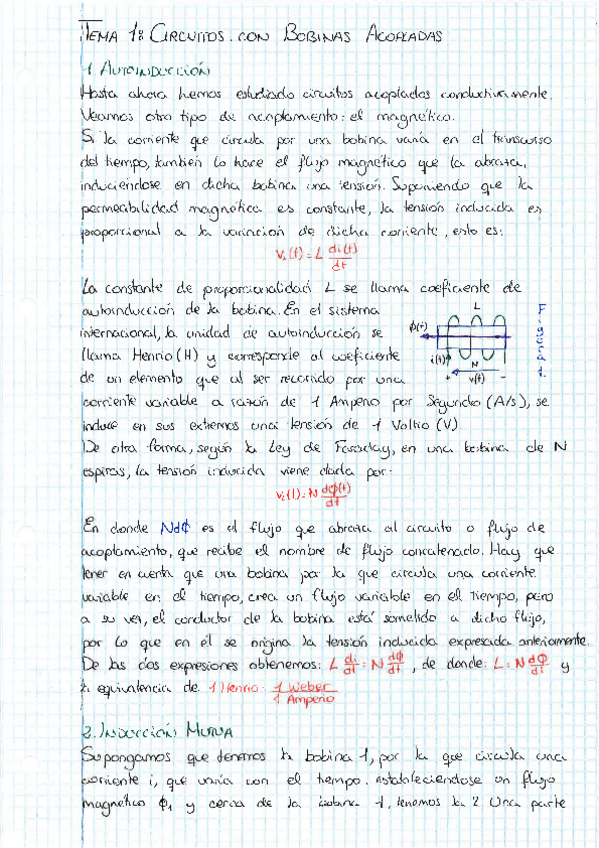 TEMA 1: CIRCUITOS CON BOBINAS ACOPLADAS
1. AUTOINDUCCIÓN
Hasta ahora hemos estudiado circuitos acoplados conductivamente.
Veamos otro tipo de acoplamiento: el magnético.
Si la corriente que circula por una bobina varía en el transcurso
del tiempo, también lo hace el flujo magnético que la abraza,
induciéndose en dicha bobina una tensión. Suponiendo que la
permeabilidad magnética es constante, la tensión inducida es
proporcional a la variación de dicha corriente, esto es:
vi(t) = L di(t)/dt
La constante de proporcionalidad L se llama coeficiente de
autoinducción de la bobina. En el sistema
internacional, la unidad de autoinducción se
llama Henrio (H) y corresponde al coeficiente
de un elemento que al ser recorrido por una
L
ϕ(t)
i(t)
N
+ v(t) -
corriente variable a razón de 1 Amperio por Segundo (A/s), se
induce en sus extremos una tensión de 1 Voltio (V).
De otra forma, según la Ley de Faraday, en una bobina de N
espiras, la tensión inducida viene dada por:
vi(t) = N dϕ(t)/dt
En donde Ndϕ es el flujo que abraza al circuito o flujo de
acoplamiento, que recibe el nombre de flujo concatenado. Hay que
tener en cuenta que una bobina por la que circula una corriente
variable en el tiempo, crea un flujo variable en el tiempo, pero
a su vez, el conductor de la bobina está sometido a dicho flujo,
por lo que en él se origina la tensión inducida expresada anteriormente.
De las dos expresiones obtenemos: L di/dt = N dϕ/dt, de donde: L = N dϕ/di y
la equivalencia de 1 Henrio = 1 Weber/1 Amperio
2. INDUCCIÓN MUTUA
Supongamos que tenemos la bobina 1, por la que circula una
corriente i, que varía con el tiempo, estableciéndose un flujo
magnético ϕ1 y cerca de la bobina 1, tenemos la 2. Una parte